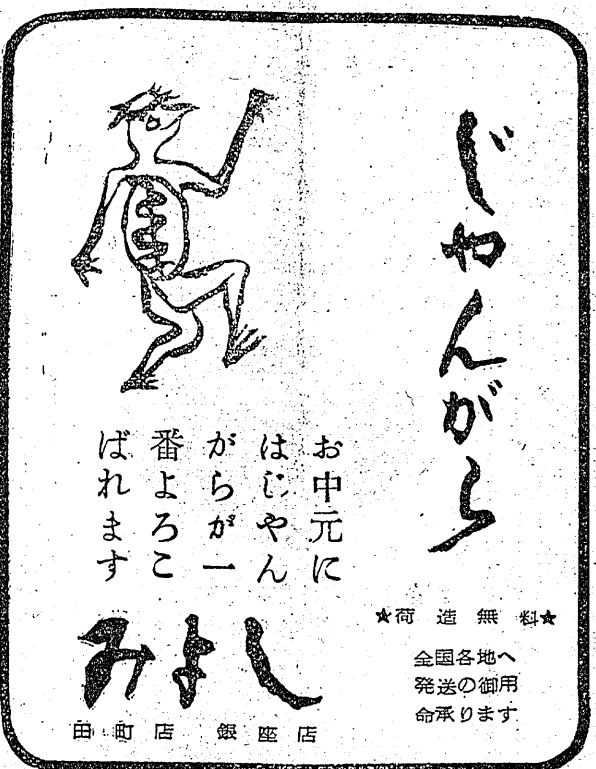 じゃんがら
お中元に
はじやん
がらが一
番よろこ
ばれます
★荷造無料★
全国各地へ
発送の御用
命承ります
みよし
田町店 銀座店